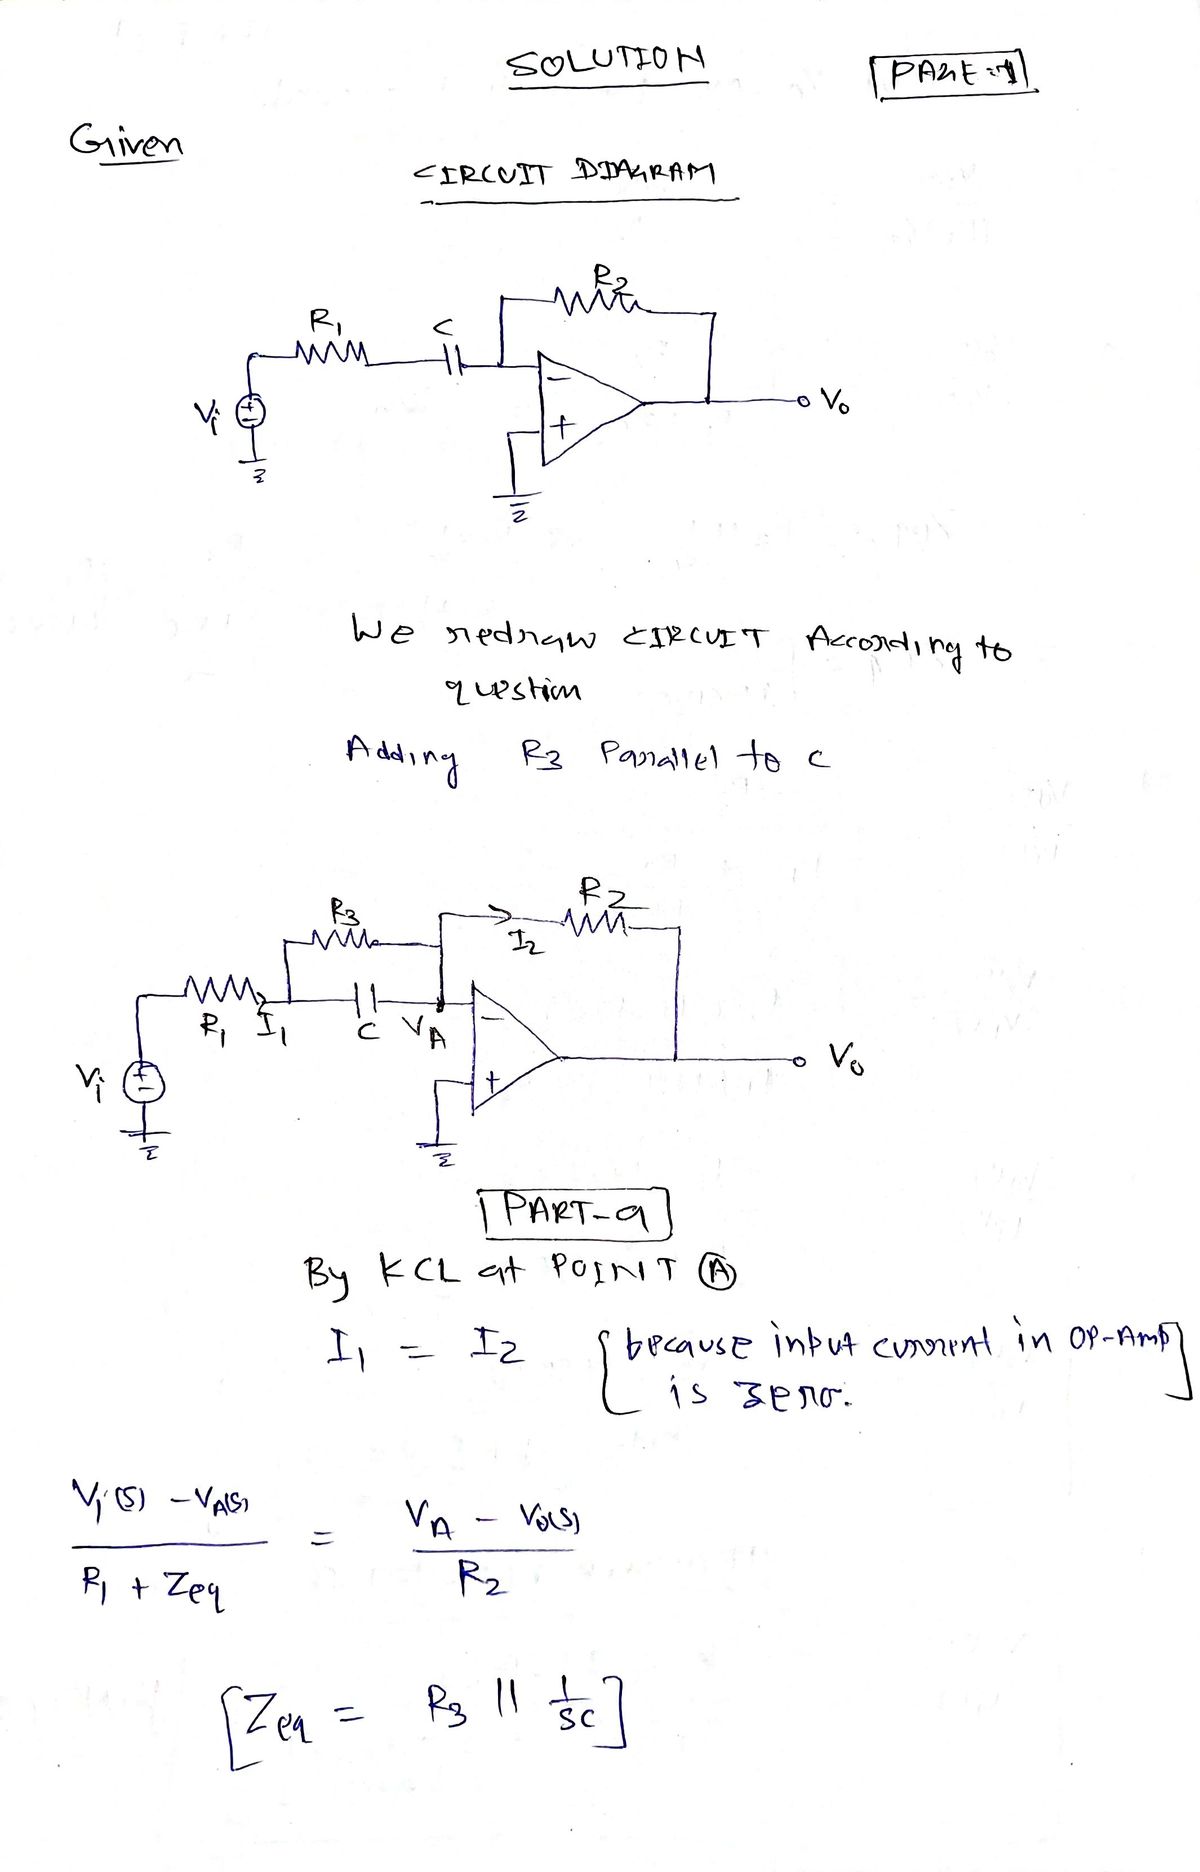 SOLUTION
PAGE:-1
Given
CIRCUIT DIAGRAM
R2
R1
C
Vi
+
-
-
+
Vo
We redraw CIRCUIT According to
question
Adding R3 Parallel to C
R2
R3
I2
R1 I1 C VA
-
Vi
+
-
+
Vo
PART-a
By KCL at POINT Ⓐ
I1 = I2 [because input current in OP-Amp
is zero.]
Vi(s) - VA(s) / R1 + Zeq = VA - Vo(s) / R2
[Zeq = R3 || 1/sc]